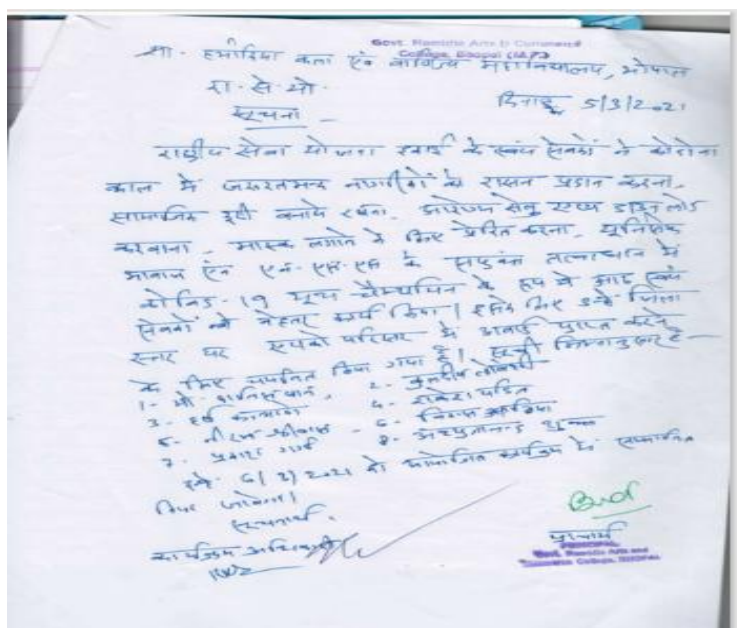 Govt. Hamidia Arts & Commerce
College, Bhopal (M.P.)
शा. हमीदिया कला एवं वाणिज्य महाविद्यालय, भोपाल
रा. से. यो.
दिनांक 5/3/2021
सूचना -
राष्ट्रीय सेवा योजना इकाई के स्वयं सेवकों ने कोरोना
काल में जरूरतमन्द नागरिकों को राशन प्रदान करना,
सामाजिक दूरी बनाये रखना, आरोग्य सेतु एप्प डाउनलोड
करवाना, मास्क लगाने के लिए प्रेरित करना, यूनिसेफ
आवाज एवं एन. एस. एस के संयुक्त तत्वाधान में
कोविड-19 यूथ चैम्पियन के रूप में आठ स्वयं
सेवकों ने बेहतर कार्य किया। इसके लिए उन्हें जिला
स्तर पर परिसर में अवार्ड प्राप्त करने
के लिए चयनित किया गया है। सूची निम्नानुसार है -
1- मो. खान, 2- कुलदीप
3- हर्ष 4- राकेश पंडित
5- नीरज श्रीवास 6-
7- प्रकाश 8- अच्युतानन्द शुक्ला
6/3/2021 को आयोजित कार्यक्रम में सम्मानित
किया जायेगा।
सूचनार्थ.
कार्यक्रम अधिकारी
प्राचार्य
PRINCIPAL
Govt. Hamidia Arts and
Commerce College, BHOPAL